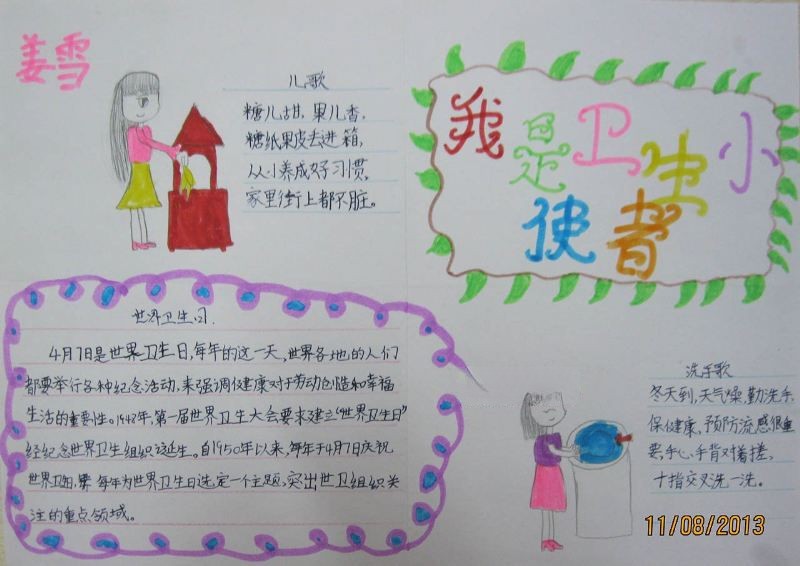 姜雪
儿歌
糖儿甜,果儿香,
糖纸果皮丢进箱,
从小养成好习惯,
家里街上都不脏。
我是卫生小
使者
世界卫生日.
4月7日是世界卫生日,每年的这一天,世界各地的人们
都要举行各种纪念活动,来强调健康对于劳动创造和幸福
生活的重要性。1948年,第一届世界卫生大会要求建立“世界卫生日”
纪念世界卫生组织诞生。自1950年以来,每年于4月7日庆祝
世界卫日,每年为世界卫生日选定一个主题,突出世卫组织关
注的重点领域。
洗手歌
冬天到,天气燥,勤洗手,
保健康、预防流感很重
要,手心手背对着搓,
十指交叉洗一洗。
11/08/2013